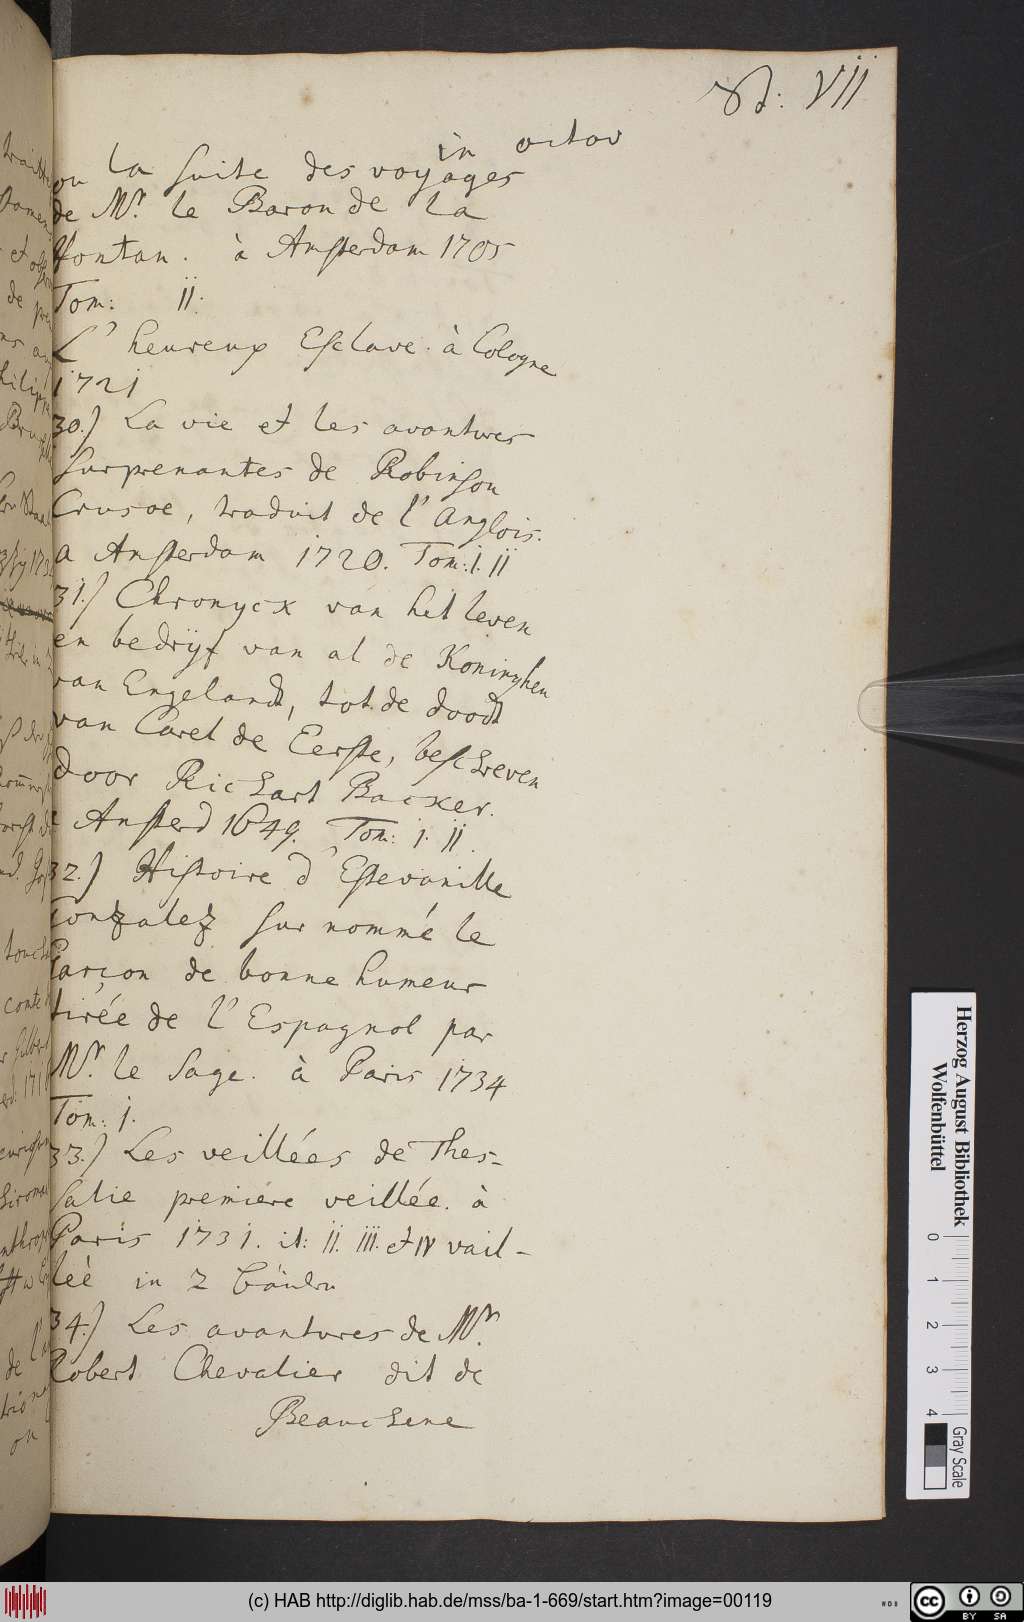 VII
in octav
ou la suite des voyages
de Mr. le Baron de la
Hontan. à Amsterdam 1705
Tom: II.
L'heureux Esclave. à Cologne
1721
30.) La vie et les avantures
surprenantes de Robinson
Crusoe, traduit de l'Anglois.
a Amsterdam 1720. Tom: I. II
31.) Chronycx van het leven
en bedrÿf van al de Koninghen
van Engelandt, tot de doodt
van Carel de Eerste, beschreven
door Richart Backer.
Amsterd 1649. Tom: I. II.
32.) Histoire d'Estevanille
Gonzalez sur nommé le
Garçon de bonne humeur
tirée de l'Espagnol par
Mr. le Sage. à Paris 1734
Tom: I.
33.) Les veillées de Thes-
salie premiere veillée. à
Paris 1731. it: II. III. et IV vail-
leé in 2 Bänden
34.) Les avantures de Mr.
Robert Chevalier dit de
Beauchene
Herzog August Bibliothek
Wolfenbüttel
0 1 2 3 4
Gray Scale
(c) HAB http://diglib.hab.de/mss/ba-1-669/start.htm?image=00119
WDB
cc BY SA